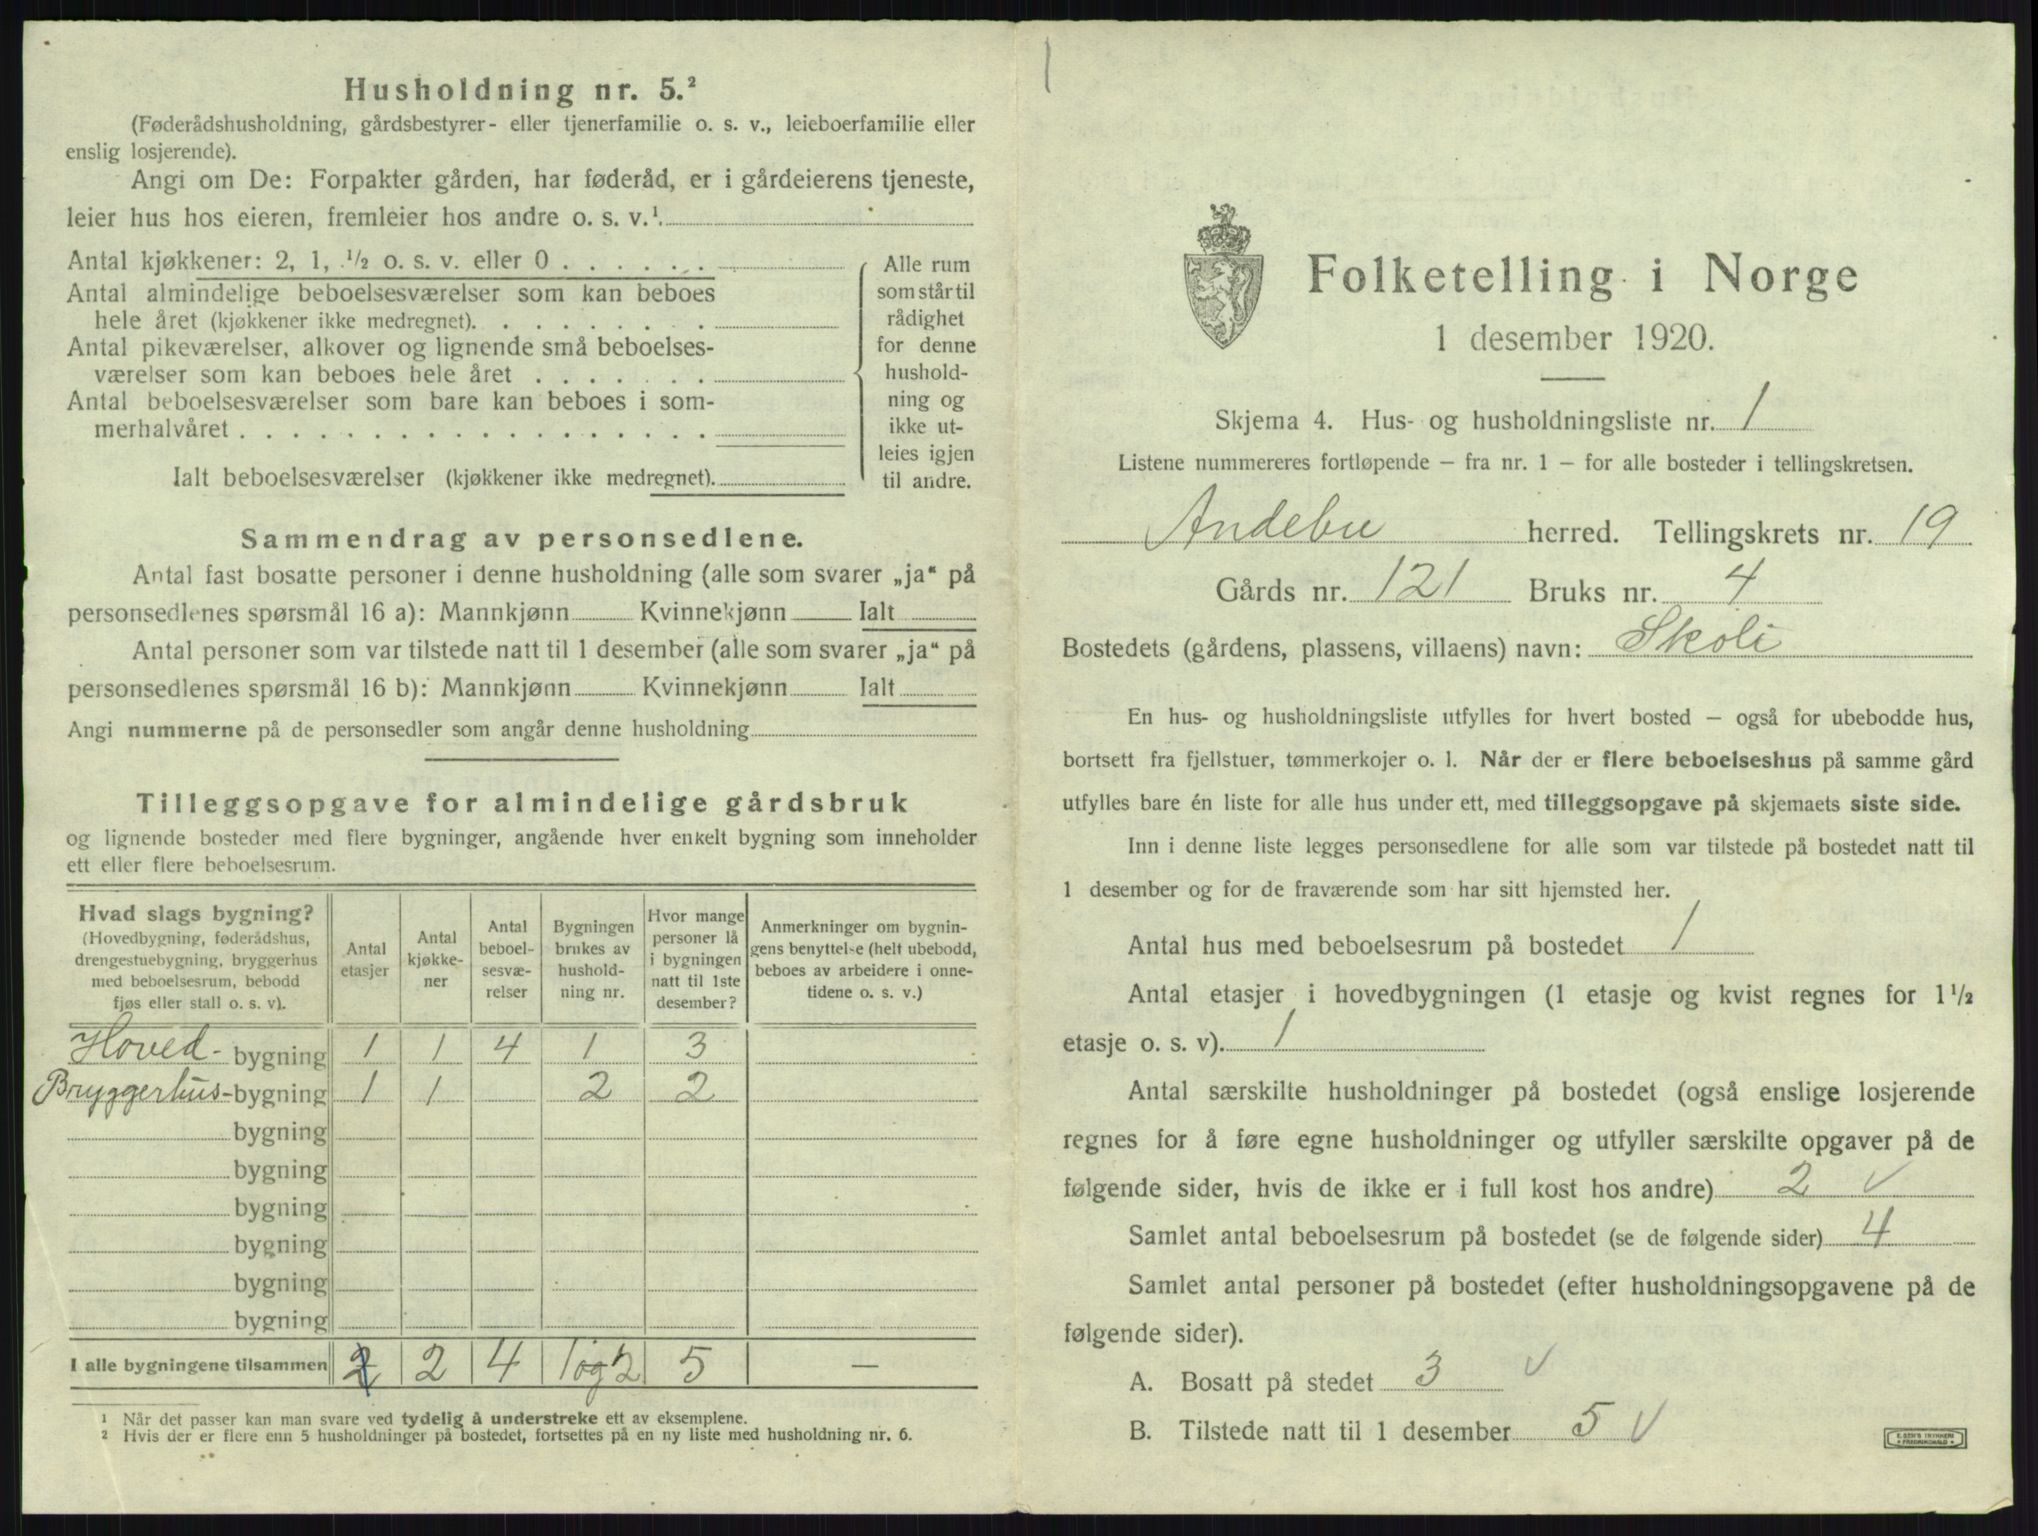 Husholdning nr. 5.²
(Føderådshusholdning, gårdsbestyrer- eller tjenerfamilie o. s. v., leieboerfamilie eller
enslig losjerende).
Angi om De: Forpakter gården, har føderåd, er i gårdeierens tjeneste,
leier hus hos eieren, fremleier hos andre o. s. v.¹
Antal kjøkkener: 2, 1, ½ o. s. v. eller 0 . . . . . .
Antal almindelige beboelsesværelser som kan beboes
hele året (kjøkkener ikke medregnet). . . . . . . . .
Antal pikeværelser, alkover og lignende små beboelses-
værelser som kan beboes hele året . . . . . . .
Antal beboelsesværelser som bare kan beboes i som-
merhalvåret . . . . . . . . . . . . . . . . . .
Ialt beboelsesværelser (kjøkkener ikke medregnet).
Alle rum
som står til
rådighet
for denne
hushold-
ning og
ikke ut-
leies igjen
til andre.
Sammendrag av personsedlene.
Antal fast bosatte personer i denne husholdning (alle som svarer „ja“ på
personsedlenes spørsmål 16 a): Mannkjønn Kvinnekjønn Ialt
Antal personer som var tilstede natt til 1 desember (alle som svarer „ja“ på
personsedlenes spørsmål 16 b): Mannkjønn Kvinnekjønn Ialt
Angi nummerne på de personsedler som angår denne husholdning
Tilleggsopgave for almindelige gårdsbruk
og lignende bosteder med flere bygninger, angående hver enkelt bygning som inneholder
ett eller flere beboelsesrum.
Hvad slags bygning?
(Hovedbygning, føderådshus,
drengestuebygning, bryggerhus
med beboelsesrum, bebodd
fjøs eller stall o. s. v).
Antal
etasjer
Antal
kjøkke-
ner
Antal
beboel-
sesvæ-
relser
Bygningen
brukes av
hushold-
ning nr.
Hvor mange
personer lå
i bygningen
natt til 1ste
desember?
Anmerkninger om bygnin-
gens benyttelse (helt ubebodd,
beboes av arbeidere i onne-
tidene o. s. v.)
Hoved- bygning 1 1 4 1 3
Bryggerhus- bygning 1 1 2 2
bygning
bygning
bygning
bygning
bygning
bygning
I alle bygningene tilsammen 2 2 4 1 og 2 5 —
¹ Når det passer kan man svare ved tydelig å understreke ett av eksemplene.
² Hvis der er flere enn 5 husholdninger på bostedet, fortsettes på en ny liste med husholdning nr. 6.
Folketelling i Norge
1 desember 1920.
Skjema 4. Hus- og husholdningsliste nr. 1
Listene nummereres fortløpende – fra nr. 1 – for alle bosteder i tellingskretsen.
Andebu herred. Tellingskrets nr. 19
Gårds nr. 121 Bruks nr. 4
Bostedets (gårdens, plassens, villaens) navn: Skoli
En hus- og husholdningsliste utfylles for hvert bosted – også for ubebodde hus,
bortsett fra fjellstuer, tømmerkojer o. l. Når der er flere beboelseshus på samme gård
utfylles bare én liste for alle hus under ett, med tilleggsopgave på skjemaets siste side.
Inn i denne liste legges personsedlene for alle som var tilstede på bostedet natt til
1 desember og for de fraværende som har sitt hjemsted her.
Antal hus med beboelsesrum på bostedet 1
Antal etasjer i hovedbygningen (1 etasje og kvist regnes for 1½
etasje o. s. v). 1
Antal særskilte husholdninger på bostedet (også enslige losjerende
regnes for å føre egne husholdninger og utfyller særskilte opgaver på de
følgende sider, hvis de ikke er i full kost hos andre) 2 ✓
Samlet antal beboelsesrum på bostedet (se de følgende sider) 4
Samlet antal personer på bostedet (efter husholdningsopgavene på de
følgende sider).
A. Bosatt på stedet 3 ✓
B. Tilstede natt til 1 desember 5 ✓